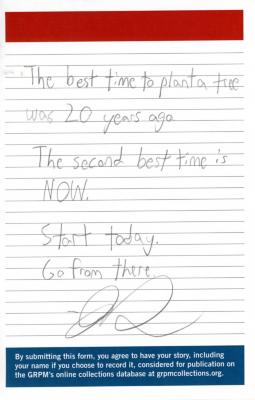 The best time to plant a tree
was 20 years ago
The second best time is
NOW.
Start today.
Go from there.
By submitting this form, you agree to have your story, including
your name if you choose to record it, considered for publication on
the GRPM's online collections database at grpmcollections.org.